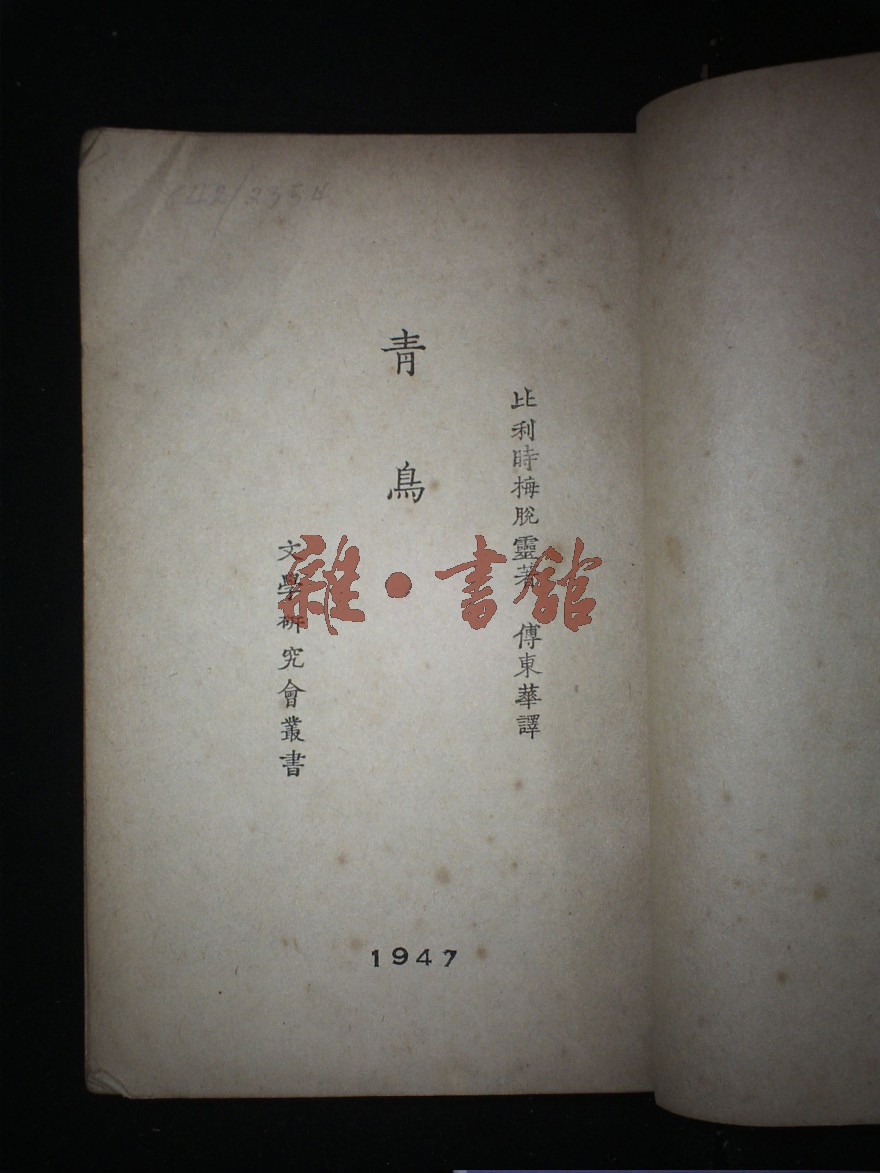 比利時梅脫靈著 傅東華譯
青鳥
文學研究會叢書
1947
雜·書館